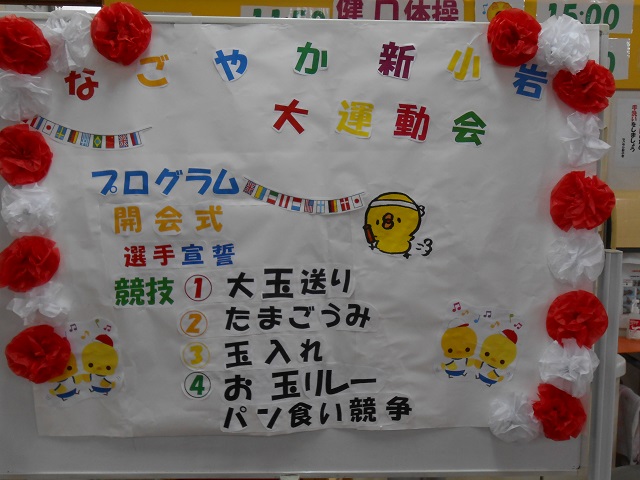 健口体操
15:00
なごやか新小岩
大運動会
プログラム
開会式
選手宣誓
競技 ① 大玉送り
② たまごうみ
③ 玉入れ
④ お玉リレー
パン食い競争